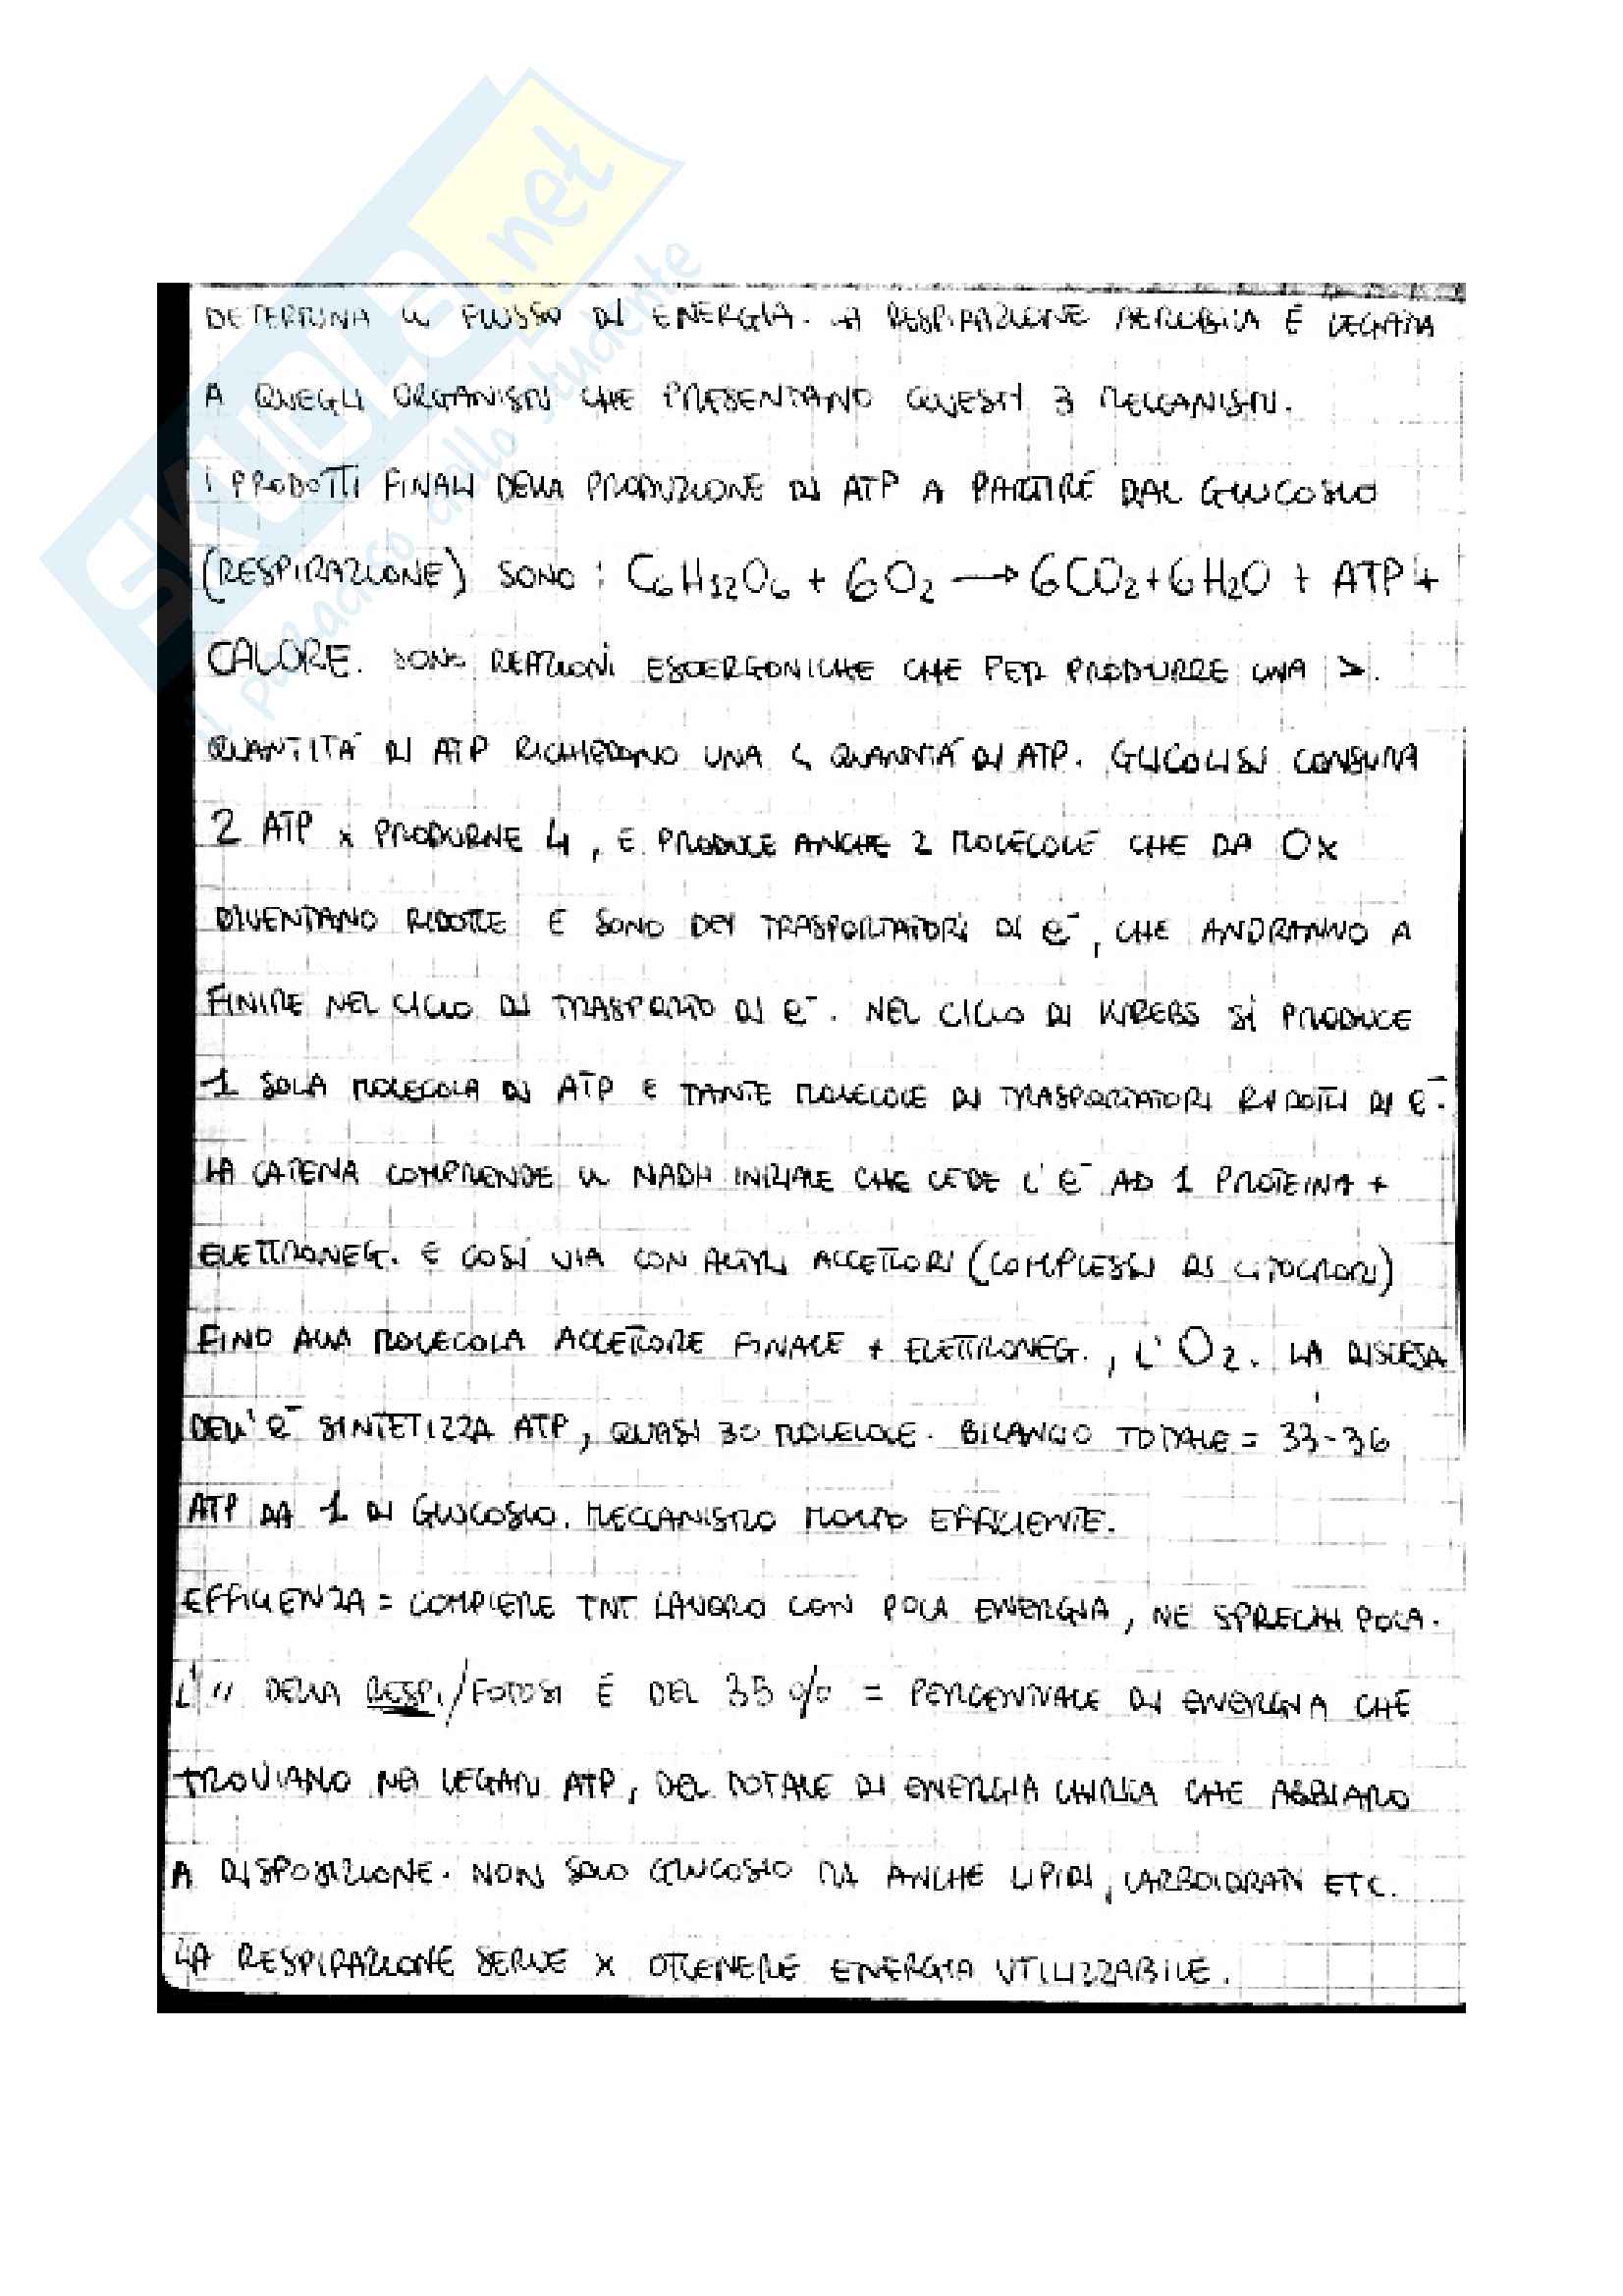 SKUOLA.net
il paradiso dello studente
DETERMINA IL FLUSSO DI ENERGIA. LA RESPIRAZIONE AEROBICA È LEGATA
A QUEGLI ORGANISMI CHE PRESENTANO QUESTI 3 MECCANISMI.
I PRODOTTI FINALI DELLA PRODUZIONE DI ATP A PARTIRE DAL GLUCOSIO
(RESPIRAZIONE) SONO : C₆H₁₂O₆ + 6O₂ → 6CO₂+6H₂O + ATP +
CALORE. SONO REAZIONI ESOERGONICHE CHE PER PRODURRE UNA >
QUANTITÀ DI ATP RICHIEDONO UNA < QUANTITÀ DI ATP. GLICOLISI CONSUMA
2 ATP x PRODURNE 4, E PRODUCE ANCHE 2 MOLECOLE CHE DA OX
DIVENTANO RIDOTTE E SONO DEI TRASPORTATORI DI e⁻, CHE ANDRANNO A
FINIRE NEL CICLO DI TRASPORTO DI e⁻. NEL CICLO DI KREBS SI PRODUCE
1 SOLA MOLECOLA DI ATP E TANTE MOLECOLE DI TRASPORTATORI RIDOTTI DI e⁻.
LA CATENA COMPRENDE IL NADH INIZIALE CHE CEDE L'e⁻ AD 1 PROTEINA +
ELETTRONEG. E COSÌ VIA CON ALTRI ACCETTORI (COMPLESSI DI CITOCROMI)
FINO ALLA MOLECOLA ACCETTORE FINALE + ELETTRONEG., L'O₂. LA DISCESA
DELL'e⁻ SINTETIZZA ATP, QUASI 30 MOLECOLE. BILANCIO TOTALE = 33-36
ATP DA 1 DI GLUCOSIO. MECCANISMO MOLTO EFFICIENTE.
EFFICIENZA = COMPIERE TNT LAVORO CON POCA ENERGIA, NE SPRECHI POCA.
L' " DELLA RESPI./FOTOSI È DEL 35 % = PERCENTUALE DI ENERGIA CHE
TROVIAMO NEI LEGAMI ATP, DEL TOTALE DI ENERGIA CHIMICA CHE ABBIAMO
A DISPOSIZIONE. NON SOLO GLUCOSIO MA ANCHE LIPIDI, CARBOIDRATI ETC.
LA RESPIRAZIONE SERVE x OTTENERE ENERGIA UTILIZZABILE.